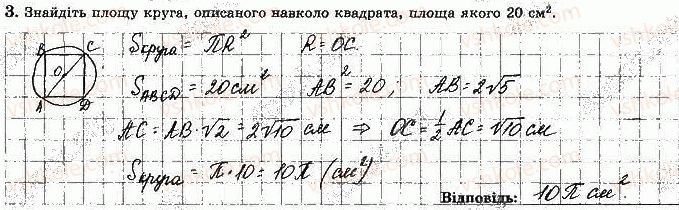 3. Знайдіть площу круга, описаного навколо квадрата, площа якого 20 см².
B C
O
A D
Sкруга = πR² R = OC.
S_ABCD = 20 см² AB² = 20; AB = 2√5
AC = AB·√2 = 2√10 см ⇒ OC = 1/2 AC = √10 см
Sкруга = π·10 = 10π (см²)
Відповідь: 10π см².